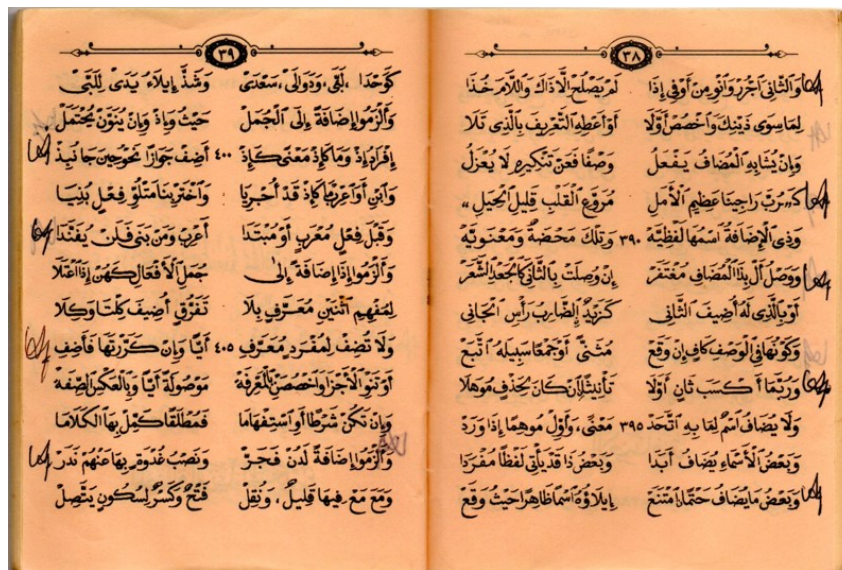 ٣٨
وَالثَّانِيَ اجْرُرْ وَانْوِ مِنْ أَوْ فِي إِذَا لَمْ يَصْلُحِ الَّا ذَاكَ وَاللَّامَ خُذَا
لِمَا سِوَى ذَيْنِكَ وَاخْصُصْ أَوَّلَا أَوْ أَعْطِهِ التَّعْرِيفَ بِالَّذِي تَلَا
وَإِنْ يُشَابِهِ الْمُضَافُ يَفْعَلُ وَصْفًا فَعَنْ تَنْكِيرِهِ لَا يُعْزَلُ
كَـ«رُبَّ رَاجِينَا عَظِيمِ الْأَمَلِ مُرَوَّعِ الْقَلْبِ قَلِيلِ الْحِيَلِ»
وَذِي الْإِضَافَةُ اسْمُهَا لَفْظِيَّهْ ٣٩٠ وَتِلْكَ مَحْضَةٌ وَمَعْنَوِيَّهْ
وَوَصْلُ أَلْ بِذَا الْمُضَافِ مُغْتَفَرْ إِنْ وُصِلَتْ بِالثَّانِ كَالْجَعْدِ الشَّعَرْ
أَوْ بِالَّذِي لَهُ أُضِيفَ الثَّانِي كَزَيْدٌ الضَّارِبُ رَأْسِ الْجَانِي
وَكَوْنُهَا فِي الْوَصْفِ كَافٍ إِنْ وَقَعْ مُثَنًّى أَوْ جَمْعًا سَبِيلَهُ اتَّبَعْ
وَرُبَّمَا أَكْسَبَ ثَانٍ أَوَّلَا تَأْنِيثًا إِنْ كَانَ لِحَذْفٍ مُوهَلَا
وَلَا يُضَافُ اسْمٌ لِمَا بِهِ اتَّحَدْ ٣٩٥ مَعْنًى، وَأَوِّلْ مُوهِمًا إِذَا وَرَدْ
وَبَعْضُ الْأَسْمَاءِ يُضَافُ أَبَدَا وَبَعْضُ ذَا قَدْ يَأْتِ لَفْظًا مُفْرَدَا
وَبَعْضُ مَا يُضَافُ حَتْمًا امْتَنَعْ إِيلَاؤُهُ اسْمًا ظَاهِرًا حَيْثُ وَقَعْ
٣٩
كَوَحْدَ، لَبَّيْ، وَدَوَالَيْ، سَعْدَيْ وَشَذَّ إِيلَاءُ يَدَيْ لِلَبَّيْ
وَأَلْزَمُوا إِضَافَةً إِلَى الْجُمَلْ حَيْثُ وَإِذْ وَإِنْ يُنَوَّنْ يُحْتَمَلْ
إِفْرَادُ إِذْ وَمَا كَإِذْ مَعْنًى كَإِذْ ٤٠٠ أَضِفْ جَوَازًا نَحْوُ حِينَ جَا نُبِذْ
وَابْنِ أَوَ اعْرِبْ مَا كَإِذْ قَدْ أُجْرِيَا وَاخْتَرْ بِنَا مَتْلُوِّ فِعْلٍ بُنِيَا
وَقَبْلَ فِعْلٍ مُعْرَبٍ أَوْ مُبْتَدَا أَعْرِبْ وَمَنْ بَنَى فَلَنْ يُفَنَّدَا
وَأَلْزَمُوا إِذَا إِضَافَةً إِلَى جُمَلِ الْأَفْعَالِ كَهُنْ إِذَا اعْتَلَا
لِمُفْهِمِ اثْنَيْنِ مُعَرَّفٍ بِلَا تَفَرُّقٍ أُضِيفَ كِلْتَا وَكِلَا
وَلَا تُضِفْ لِمُفْرَدٍ مُعَرَّفِ ٤٠٥ أَيًّا وَإِنْ كَرَّرْتَهَا فَأَضِفِ
أَوْ تَنْوِ الْأَجْزَا وَاخْصُصَنْ بِالْمَعْرِفَهْ مَوْصُولَةً أَيًّا وَبِالْعَكْسِ الصِّفَهْ
وَإِنْ تَكُنْ شَرْطًا أَوِ اسْتِفْهَامَا فَمُطْلَقًا كَمِّلْ بِهَا الْكَلَامَا
وَأَلْزَمُوا إِضَافَةً لَدُنْ فَجَرّْ وَنَصْبُ غُدْوَةٍ بِهَا عَنْهُمْ نَدَرْ
وَمَعَ مَعْ فِيهَا قَلِيلٌ، وَنُقِلْ فَتْحٌ وَكَسْرٌ لِسُكُونٍ يَتَّصِلْ